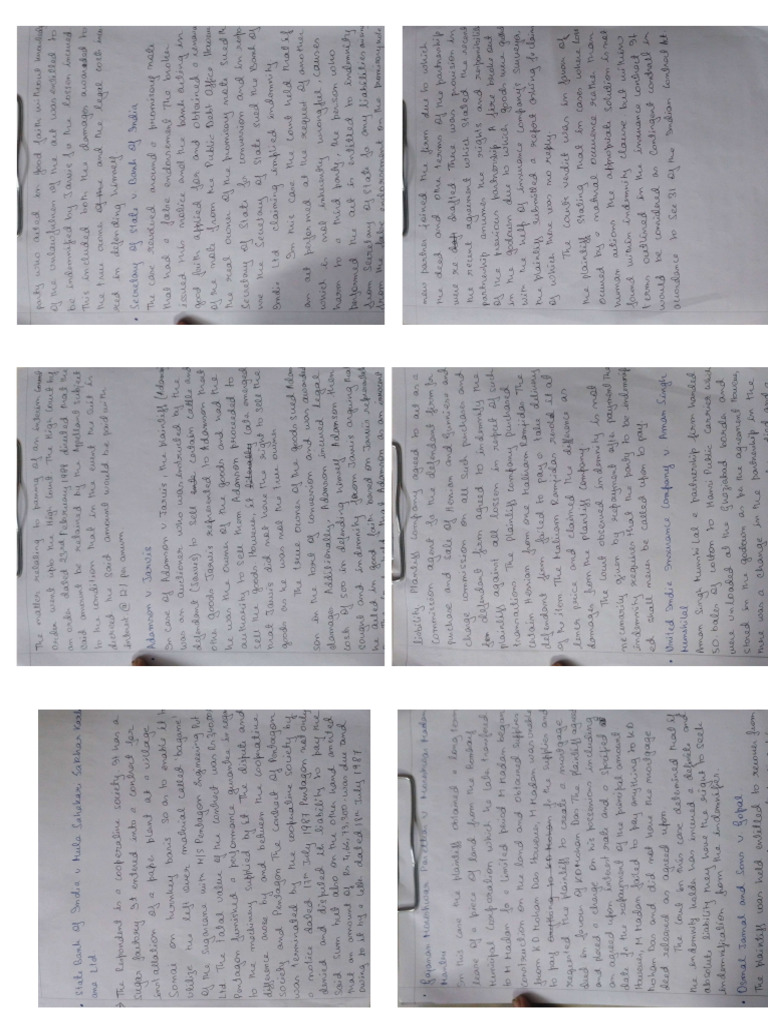 • State Bank of India v Mula Sahakari Sakhar Karkh
ana Ltd
→ The respondent is a cooperative society. It has a
sugar factory. It entered into a contract for
installation of a paper plant at a village
Sonai on turnkey basis so as to make it to
utilize the left over material called 'bagasse'
of the sugarcane with M/s Pentagon Engineering Pvt
Ltd. The total value of the contract was Rs
Pentagon furnished a performance guarantee in regard
to the machinery supplied by it. The disputes and
difference arose by and between the cooperative
society and Pentagon. The contract of Pentagon
was terminated by the cooperative society by
a notice dated 17th July 1987. Pentagon not only
denied and disputed its liability to pay the
said sum it also on the other hand asserted
that an amount of Rs 4,66,13,300 was due and
owing to it by a letter dated 18th July 1987
The matter relating to passing of an interim
order went upto the High Court. The High Court by
an order dated 22nd February 1989 directed that the
said amount be retained by the Appellant subject
to the condition that in the event the suit is
decreed the said amount would be paid with
interest @ 21% per annum
• Adamson v Jarvis
In case of Adamson v Jarvis the plaintiff (Adamson)
was an auctioneer who was instructed by the
defendant (Jarvis) to sell certain cattle and
other goods. Jarvis represented to Adamson that
he was the owner of the goods and had the
authority to sell them. Adamson proceeded to
sell the goods. However it later emerged
that Jarvis did not have the right to sell the
goods as he was not the true owner.
The true owner of the goods sued Adam
son in the tort of conversion and was awarded
damages. Additionally Adamson incurred legal
costs of 500 in defending himself. Adamson then
sought an indemnity from Jarvis arguing that
he acted in good faith based on Jarvis representat
that Adamson as an innocent
party who acted in good faith without knowledge
of the unlawfulness of the act was entitled to
be indemnified by Jarvis for the losses incurred
This included both the damages awarded to
the true owner and the legal costs incur
red in defending himself
• Secretary of State v Bank of India
The case revolved around a promissory note
that had a false endorsement. The broker
issued this notice and the bank acting in
good faith applied for and obtained a renewal
of the note from the Public Debt Office. However
the real owner of the promissory note sued the
Secretary of State for conversion and in respo
nse the Secretary of State sued the Bank of
India Ltd claiming implied indemnity
In this case the court held that if
an act performed at the request of another
which is not inherently wrongful, causes
harm to a third party, the person who
performed the act is entitled to indemnity
from Secretary of State for any liabilities arising
from the false endorsement on the promissory note
• Gajanan Moreshwar Parelkar v Moreshwar Madan
Mantri
In this case the plaintiff obtained a long term
lease of a piece of land from the Bombay
Municipal Corporation which he later transferred
to M Madan for a limited period. M Madan began
construction on the land and obtained supplies
from K D Mohan Das. However, M Madan was unable
to pay for the supplies and
requested the plaintiff to create a mortgage
deed in favour of K D Mohan Das. The plaintiff agreed
and placed a charge on his possessions including
an agreed upon interest rate and a specified
date for the repayment of the principal amount
However, M Madan failed to pay anything to KD
Mohan Das and did not have the mortgage
deed released as agreed upon
The court in this case determined that if
the indemnity holder has incurred a definite and
absolute liability they have the right to seek
indemnification from the indemnifier.
• Osmal Jamal and Sons v Gopal
The plaintiff was held entitled to recover from
liability. Plaintiff company agreed to act as a
commission agent for the defendant firm for
purchase and sale of Hessian and Gunnies and
charge commission on all such purchases and
defendant firm agreed to indemnify the
plaintiff against all losses in respect of such
transactions. The plaintiff company purchased
certain Hessian from one Maliram Ramjidas. The
defendant firm failed to pay or take delivery
of the item. The Maliram Ramjidas resold it at
lesser price and claimed the difference as
damages from the plaintiff company
The court observed indemnity is not
necessarily given by repayment after payment. The
indemnity requires that the party to be indemnifi
ed shall never be called upon to pay
• United India Insurance Company v Aman Singh
Munshilal
Aman Singh Munshilal a partnership firm handed
50 bales of cotton to Hansi Public Carrier which
were unloaded at the Ghaziabad border and
stored in the godown as per the agreement. However,
there was a change in the partnership in the
new partner joined the firm due to which
the deed and other terms of the partnership
were re drafted. There was provision in
the recent agreement which stated the recent
partnership assumes the rights and responsibilities
of the previous partnership. A fire broke out
in the godown due to which goods were gone
With the help of insurance company's surveyor
the plaintiff submitted a report asking for claim
of which there was no reply
The court's verdict was in favor of
the plaintiff stating that in cases where loss
occured by a natural occurence rather than
human actions the appropriate solution is not
found within indemnity clause but within
terms outlined in the insurance contract. It
would be considered as contingent contract in
accordance to Sec 31 of the Indian Contract Act.